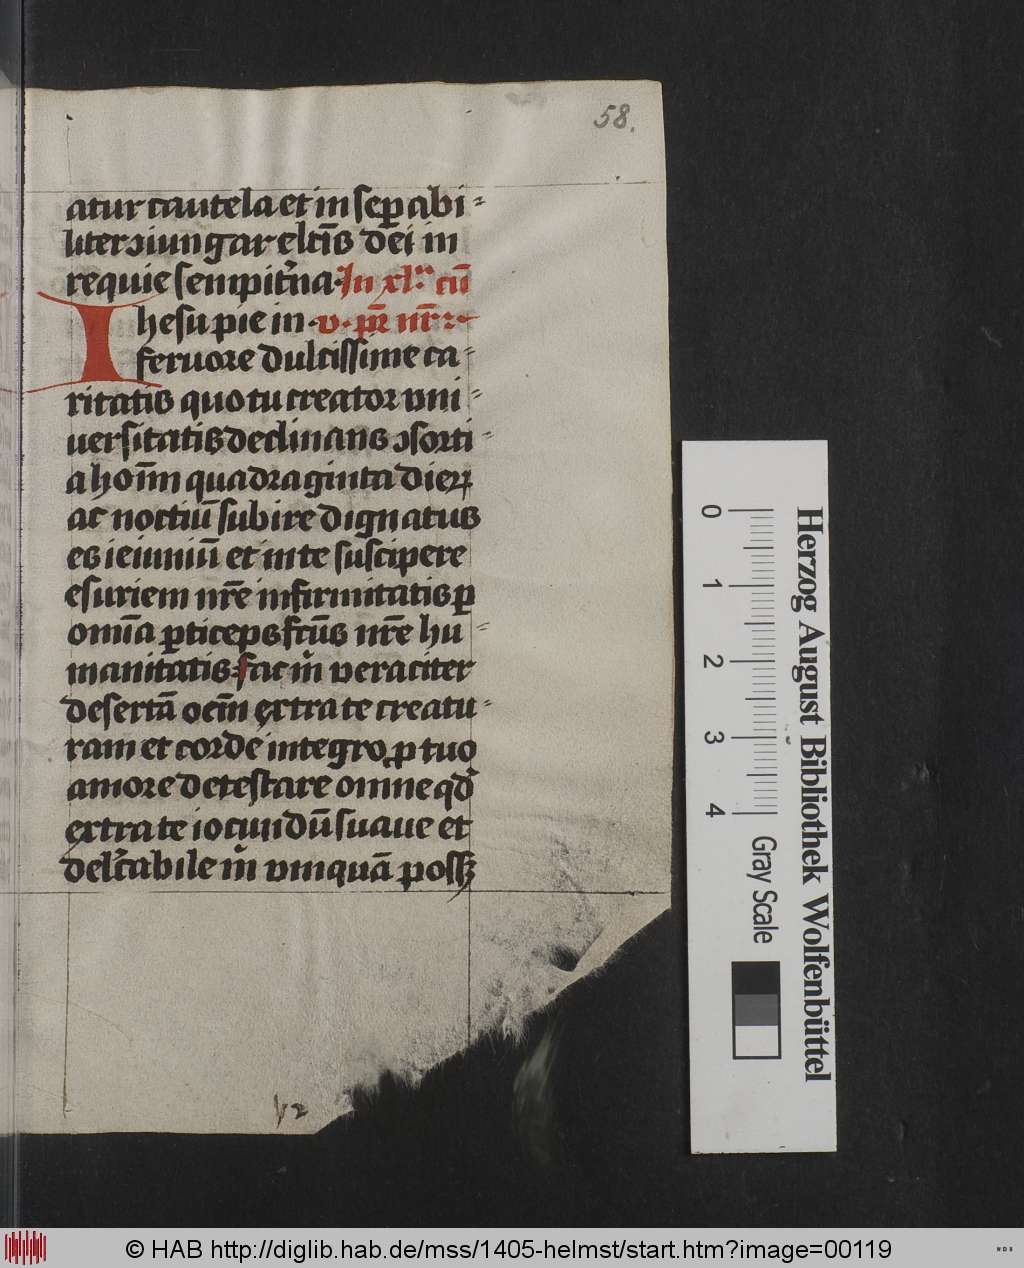 58.
atur cautela et in sep̲abi⸗
liter ↄiungar elcīs dēi in
requie sempit̾na. In xl.ª cū
Ihesu pie in .v. pr̄ nr̄
feruore dulcissime ca⸗
ritatis quo tu creator vni⸗
uersitatis declinans ↄsorti⸗
a hoīm quadraginta dieꝝ
ac noctiū subire dignatus
es ieiuniū et in te suscipere
esuriem nr̄e infirmitatis ꝑ
omīa ꝑticeps fc̄us nr̄e hu⸗
manitatis. fac m̄ veraciter
desertā oēm extra te creatu⸗
ram et corde integro ꝓ tuo
amore detestare omne qd̄
extra te iocundū suaue et
delc̄abile m̄ vmquā possꝫ
Herzog August Bibliothek Wolfenbüttel
0 1 2 3 4
Gray Scale
© HAB http://diglib.hab.de/mss/1405-helmst/start.htm?image=00119